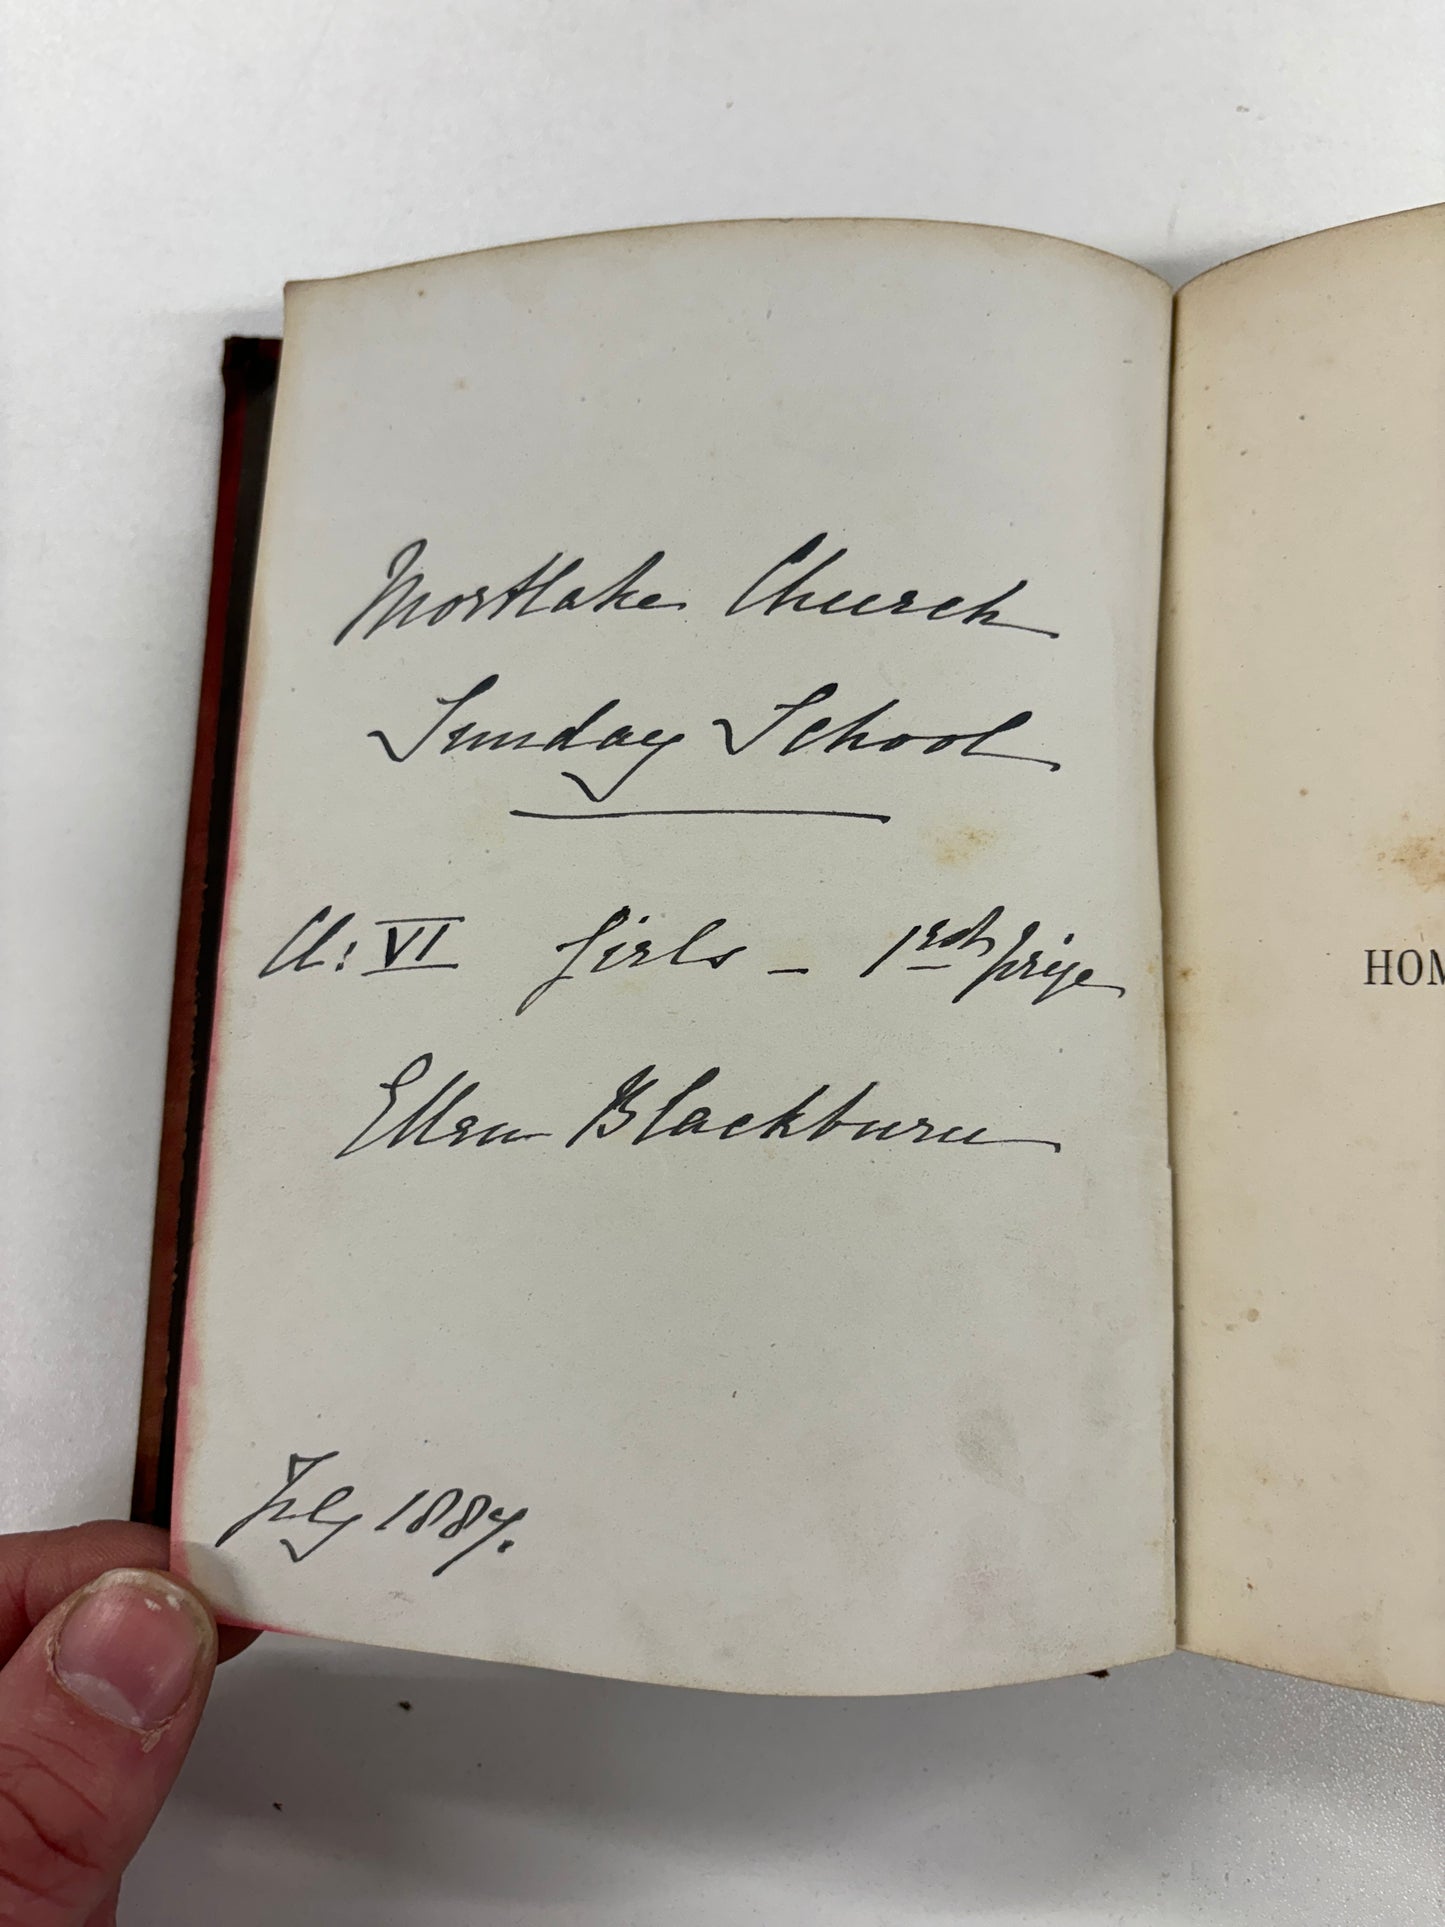 Mortlake Church
Sunday School
Cl: VI Girls - 1st prize
Ellen Blackburn
July 1887.
HOM